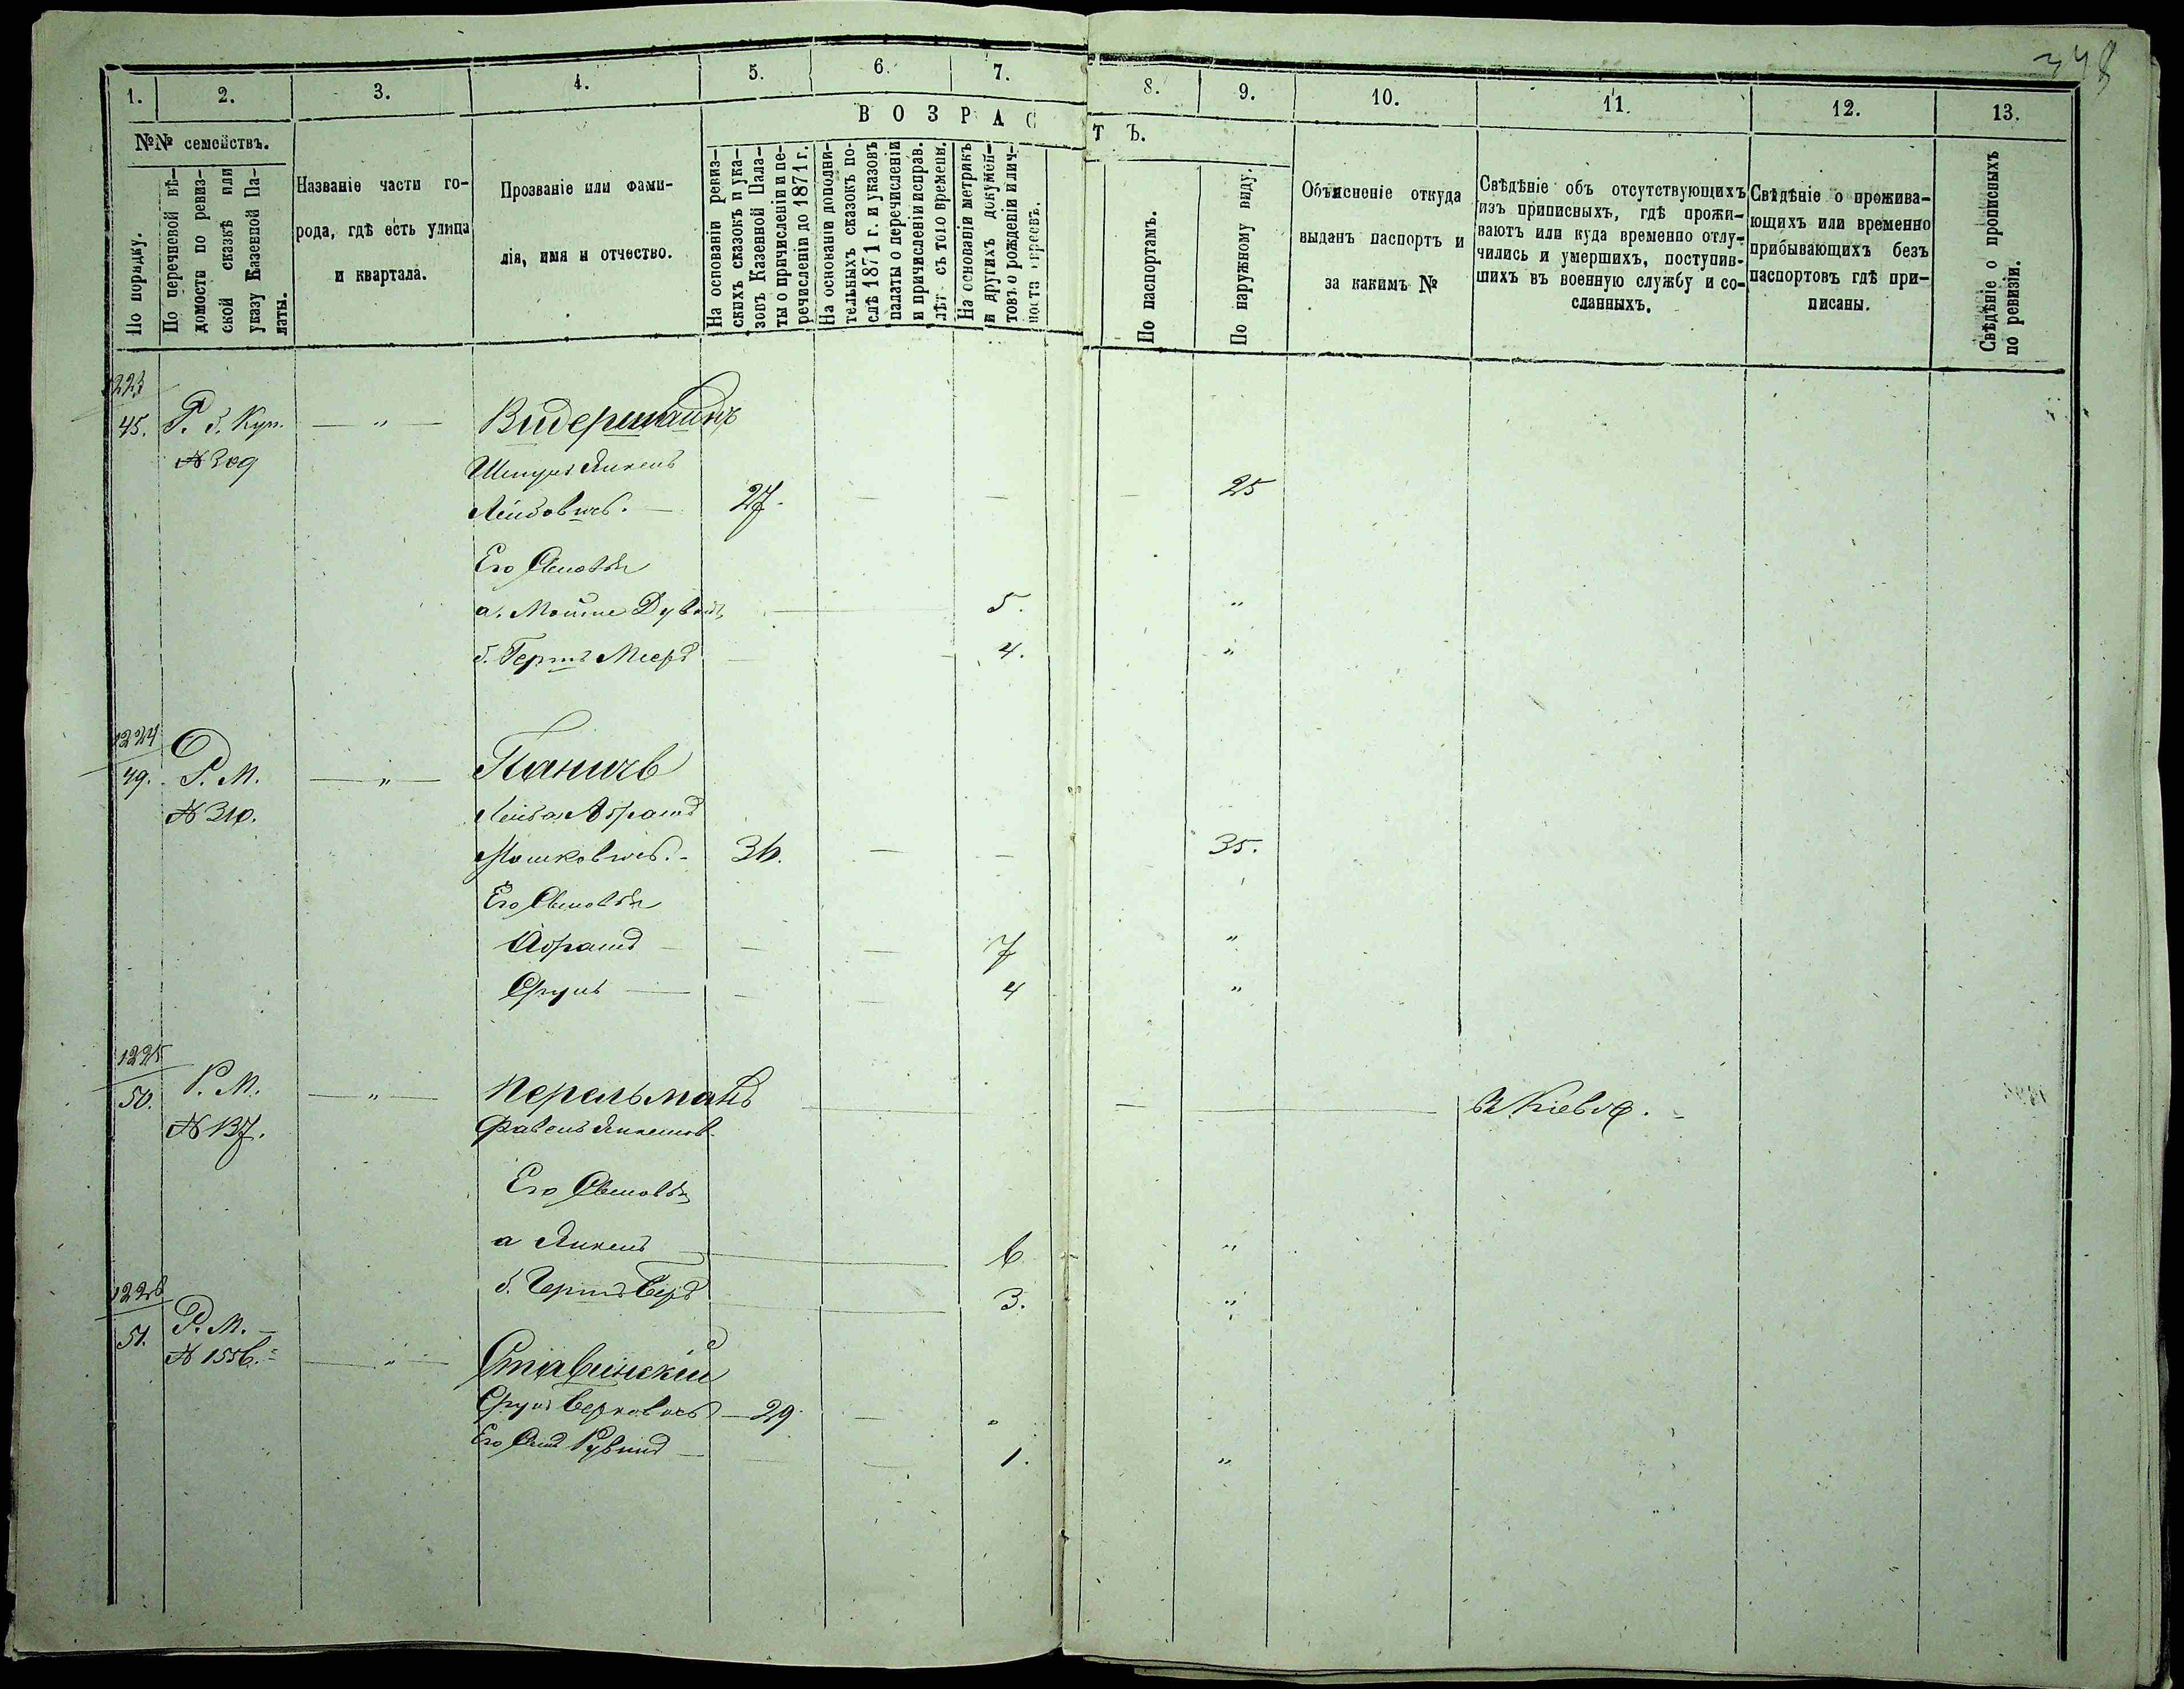 348
1. 2. 3. 4. 5. 6. 7. 8. 9. 10. 11. 12. 13.
№№ семействъ.
По порядку.
По перечневой вѣ-
домости по ревиз-
ской сказкѣ или
указу Казенной Па-
латы.
Названіе части го-
рода, гдѣ есть улица
и квартала.
Прозваніе или фами-
лія, имя и отчество.
ВОЗРАСТЪ.
На основаніи ревиз-
скихъ сказокъ и ука-
зовъ Казенной Пала-
ты о причисленіи и пе-
речисленіи до 1871 г.
На основаніи дополни-
тельныхъ сказокъ по-
слѣ 1871 г. и указовъ
палаты о перечисленіи
и причисленіи исправ.
лѣт. съ того времени.
На основаніи метрикъ
и другихъ докумен-
товъ о рожденіи и лич-
ности евреевъ.
По паспортамъ.
По наружному виду.
Объясненіе откуда
выданъ паспортъ и
за какимъ №
Свѣдѣніе объ отсутствующихъ
изъ приписныхъ, гдѣ прожи-
ваютъ или куда временно отлу-
чились и умершихъ, поступив-
шихъ въ военную службу и со-
сланныхъ.
Свѣдѣніе о прожива-
ющихъ или временно
прибывающихъ безъ
паспортовъ гдѣ при-
писаны.
Свѣдѣніе о прописныхъ
по ревизіи.
1223
45. Р. б. Куп. — " — Видершпаинъ
№ 309
Шмулъ Янкель
Лейбовичъ. — 27. — — — 25
Его Сыновья
а. Мойше Дувидъ 5. "
б. Гершъ Мееръ 4. "
1224
49. Р. М. — " — Паничъ
№ 310.
Лейба Абрамъ
Мошковичъ. 36. — — 35.
Его Сыновья
Абрамъ — — — 7 "
Сруль — — — 4 "
1225
50. Р. М. — " — Перельманъ — — — въ Кіевѣ.
№ 137.
Файвель Янкелев.
Его Сыновья
а Янкель 6 "
б. Гершъ Беръ 3. "
1226
51. Р. М.
№ 1556. — " — Ставинскій
Сруль Берковичъ — 29. — "
Его Сынъ Рувинъ — — — 1. "